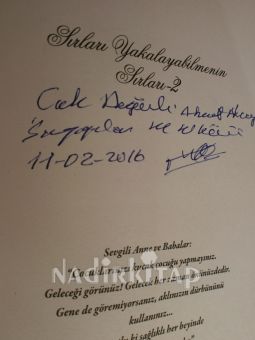 Sırları Yakalayabilmenin
Sırları-2
Çok Değerli Ahmet
11-02-2016
Sevgili Anne ve Babalar:
Çocuklarınızı kucak çocuğu yapmayınız.
Geleceği görünüz! Gelecek her zaman önünüzdedir.
Gene de göremiyorsanız, aklınızın dürbününü
kullanınız...
ki sağlıklı her beyinde
NADİRKİTAP